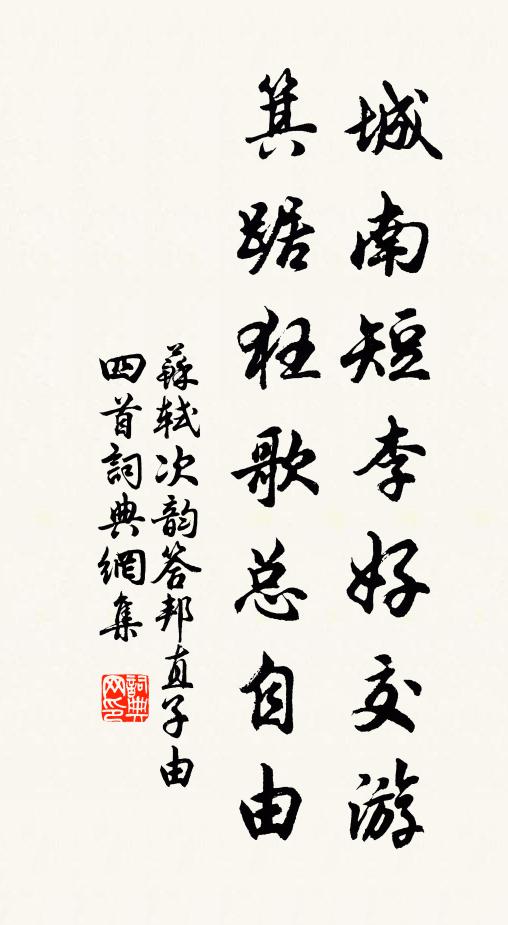 城南短李好交游
箕踞狂歌总自由
蘇軾次韵答邦直子由
四首詞典網集
詞典网印